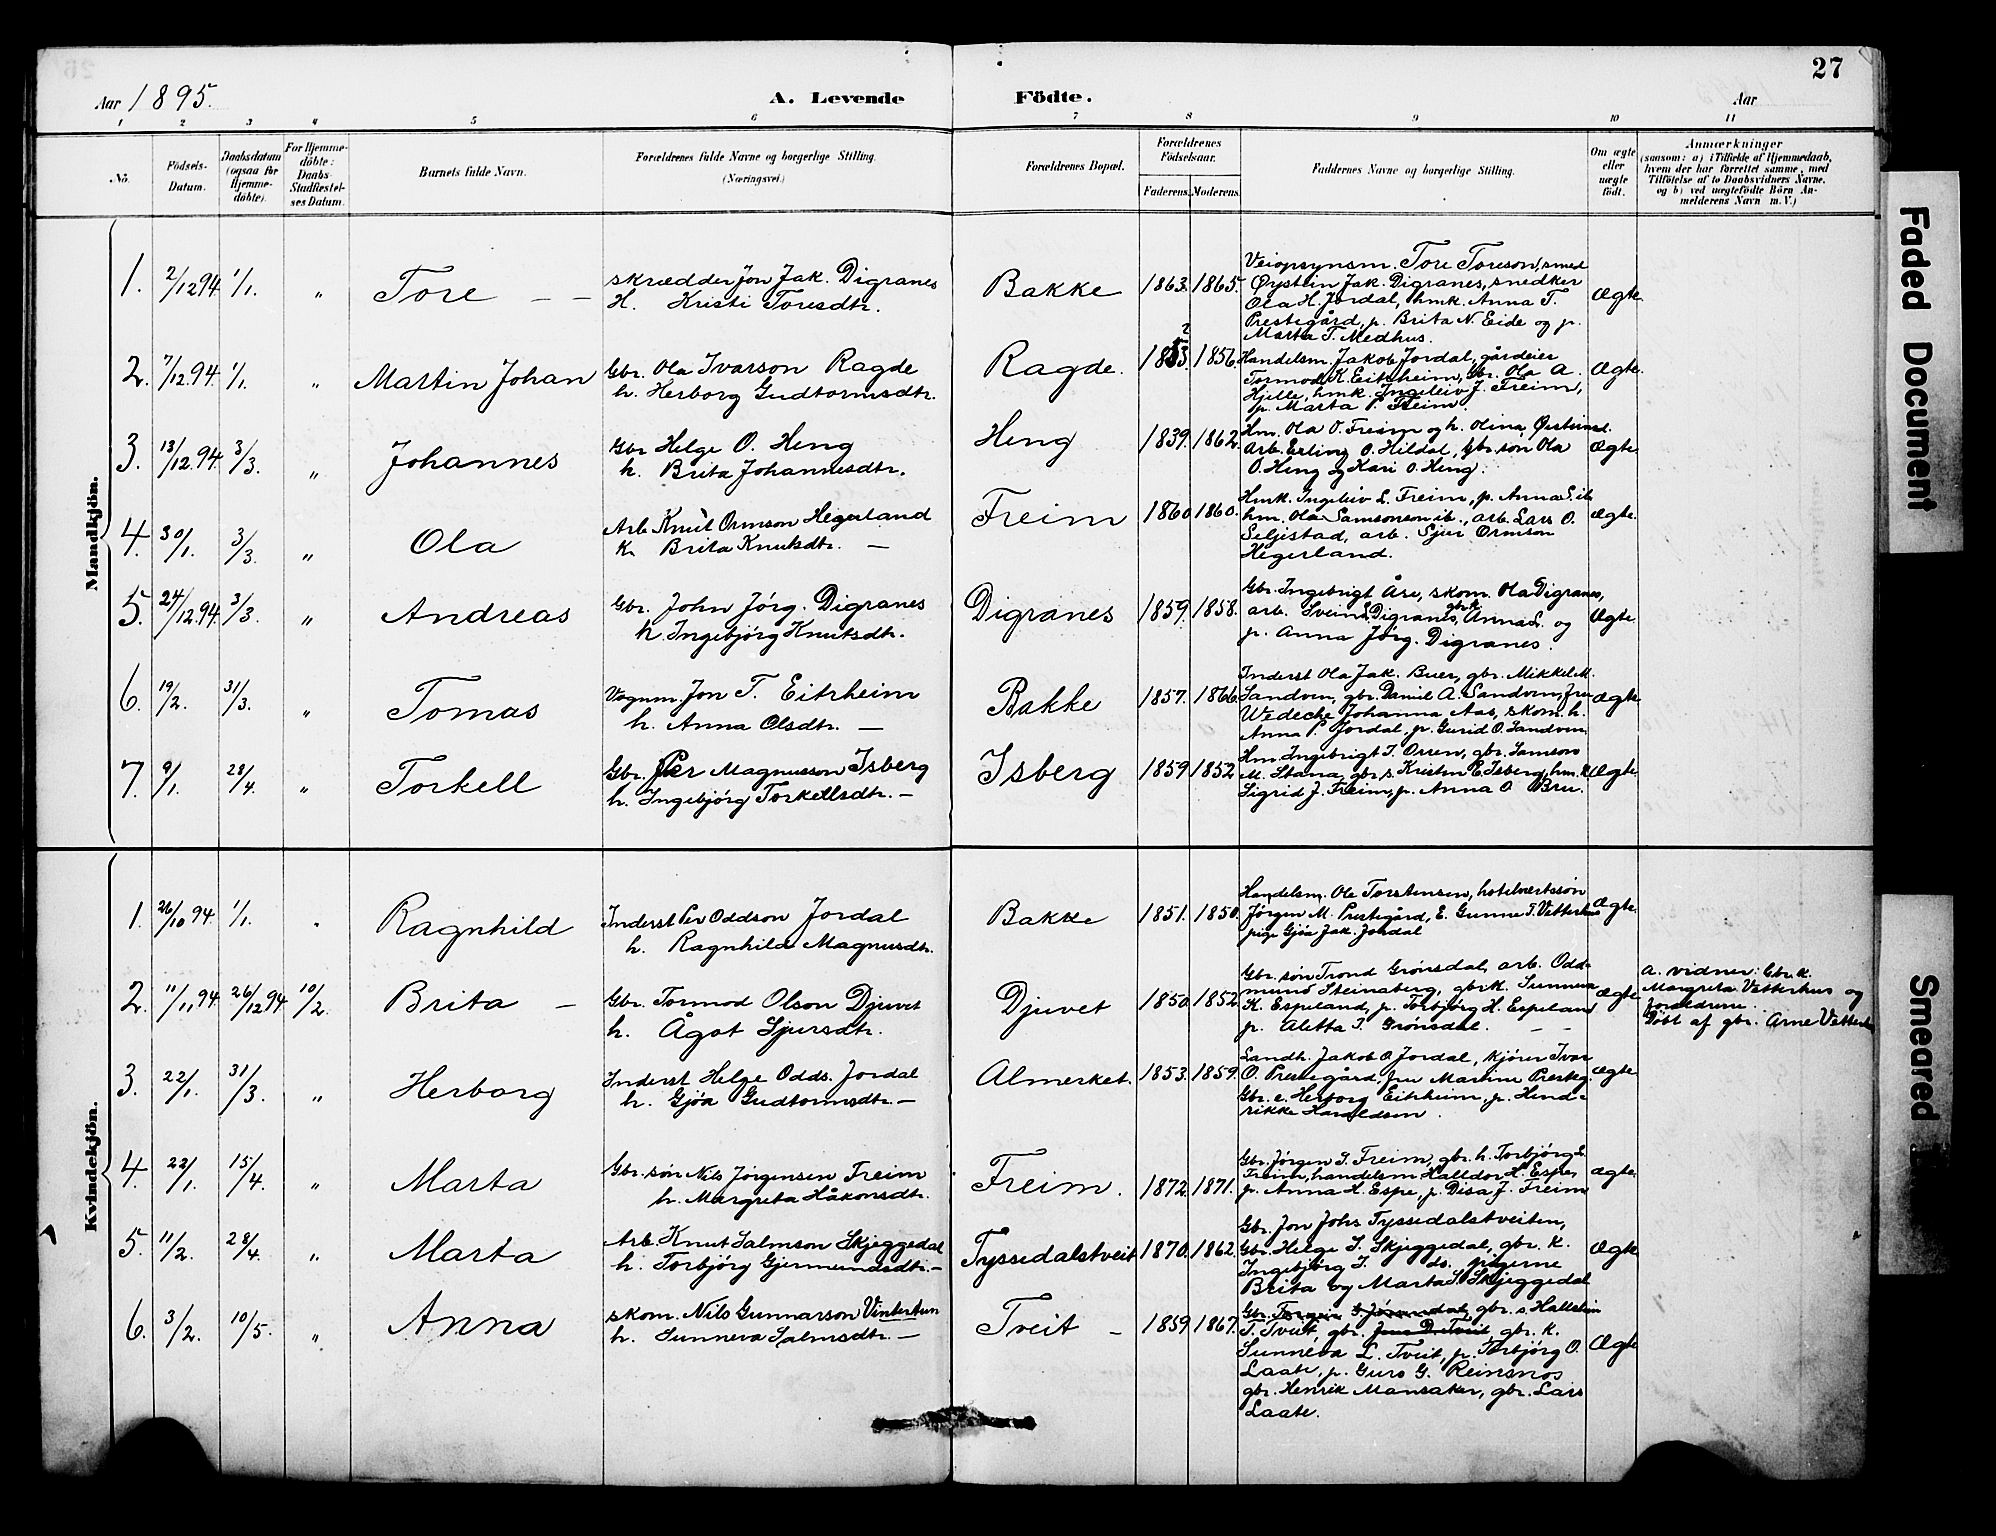 27
Aar 1895.
A. Levende Födte.
Aar
1 2 3 4 5 6 7 8 9 10 11
No.
Födsels-Datum.
Daabsdatum (ogsaa for Hjemme-döbte).
For Hjemme-döbte: Daabs-Stadfæstel-ses Datum.
Barnets fulde Navn.
Forældrenes fulde Navne og borgerlige Stilling.
(Næringsvei.)
Forældrenes Bopæl.
Forældrenes Födselsaar.
Faderens. Moderens.
Faddernes Navne og borgerlige Stilling.
Om ægte eller uægte födt.
Anmærkninger
(saasom: a) i Tilfælde af Hjemmedaab,
hvem der har forrettet samme, med
Tilföielse af to Daabsvidners Navne,
og b) ved uægtefödte Börn An-
melderens Navn m. V.)
Mandkjön.
1. 2/12 94 1/1. " Tore — —
skrædder Jon Jak. Digranes
H. Kristi Toresdtr.
Bakke 1863. 1865.
Veiopsynsm. Tore Toreson, smed
Øystein Jak. Digranes, snedker
Ola H. Jordal, hmk. Anna T.
Prestegård, p. Brita N. Eide og p.
Marta T. Medhus.
Ægte
2. 7/12. 94. 1/1. " Martin Johan
Gbr. Ola Ivarson Ragde
h. Herborg Gudtormsdtr.
Ragde. 1856.
Handelsm. Jakob Jordal, gårdeier
Tormod K. Eitrheim, Gbr. Ola A.
Hjelle, hmk. Ingeleiv J. Freim,
p. Marta P. Freim.
Ægte.
3. 13/12. 94. 3/3. " Johannes
Gbr Helge O. Heng
h. Brita Johannesdtr.
Heng 1839. 1862.
Hm. Ola O. Freim og h. Olina Øisteinsd.
Arb. Erling O. Hildal, Gbr. søn Ola
O. Heng og Kari O. Heng.
Ægte.
4. 30/1. 3/3. " Ola
Arb. Knut Ormson Hegerland
K. Brita Knutsdtr. —
Freim 1860 1860.
Hmk. Ingeleiv L. Freim, p. Anna S. ib.
hm. Ola Samsonsen ib., arb. Lars O.
Seljestad, arb. Sjur Ormson
Hegerland.
Ægte.
5. 24/12. 94. 3/3. " Andreas
Gbr. John Jörg. Digranes
h. Ingebjörg Knutsdtr.
Digranes 1859. 1858.
Gbr. Ingebrigt Åse, skom. Ola Digranes,
arb. Svein S. Digranes, gbrk. Anna S. og
p. Anna Jörg. Digranes.
Ægte.
6. 19/2. 31/3. " Tomas
Vognm. Jon T. Eitrheim
h. Anna Olsdtr. —
Bakke 1857. 1866.
Inderst Ola Jak. Buer, gbr. Mikkel M.
Sandven, gbr. Daniel A. Sandven, fru
Wedecke Johanna Aas, skom. h.
Anna P. Jordal, p. Gurid O. Sandven
Ægte
7. 9/1. 28/4. " Torkell
Gbr. Per Magnusson Isberg
h. Ingebjörg Torkellsdtr. —
Isberg 1859 1852
Hm Ingebrigt T. Orren, gbr. Samson
M. Stana, gbr. s. Kristen E. Isberg, hm. k.
Sigrid J. Freim, p. Anna O Bru.
Ægte.
Kvindekjön.
1. 26/10 94. 1/1. " Ragnhild
Inderst Per Oddson Jordal
h. Ragnhild Magnusdtr.
Bakke 1851. 1850.
Handelsm. Ole Torstensen, hotelvertssøn
Jörgen M. Prestegård, E. Gunne T. Vetterhus
pige Gjøa Jak. Jordal
Ægte.
2. 11/11 94. 26/12 94 10/2. Brita —
Gbr. Tormod Olson Djuvet
h. Ågot Sjursdtr.
Djuvet 1850. 1852.
Gbr. søn Trond Grönsdal, arb. Odd-
mund Steinaberg, gbrk. Sunneva
K. Espeland, p. Torbjörg H. Espeland
p. Aletta T. Grönsdal. — —
Ægte
a. vidner: Gbr. k.
Margreta Vetterhus og
forældrene.
Döbt af gbr. Arne Vetterhus
3. 22/1. 31/3. " Herborg
Inderst Helge Odds. Jordal
h. Gjöa Gudtormsdtr. —
Almerket. 1853. 1859.
Landh. Jakob O Jordal, kjörer Ivar
O. Prestegård, fru Martine Presteg.
Gbr. e. Herborg Eitrheim, p. Hend-
rikke Haraldsen.
Ægte.
4. 22/1. 15/4. " Marta
Gbr. søn Nils Jörgensen Freim
h. Margreta Håkonsdtr.
Freim. 1872. 1871.
Gbr. Jörgen I. Freim, gbr. h. Torbjörg L.
Freim, handelsm Halldor H. Espe,
p. Anna H. Espe, p. Disa J. Freim
Ægte.
5. 11/2. 28/4. " Marta
Arb. Knut Salmson Skjeggedal
h. Torbjörg Gjermundsdtr. —
Tyssedalstveit 1870. 1862.
Gbr. Jon Johs Tyssedalstveiten,
Gbr. Helge S. Skjeggedal, gbr. k.
Ingebjörg I. ds. pigerne
Brita og Marta S. Skjeggedal
Ægte
6. 3/2. 10/5. " Anna
skom. Nils Gunnarson Vintertun
h. Sunneva Salmsdtr. —
Tveit — 1859 1867.
gbr. s. Hallstein
T. Tveit, gbr. gbr. k.
Sunneva L. Tveit, p. Torbjörg O.
Laate, p. Guro G. Reinsnos
gbr. Henrik Mansaker, gbr. Lars
Laate.
Ægte
Faded Document
Smeared